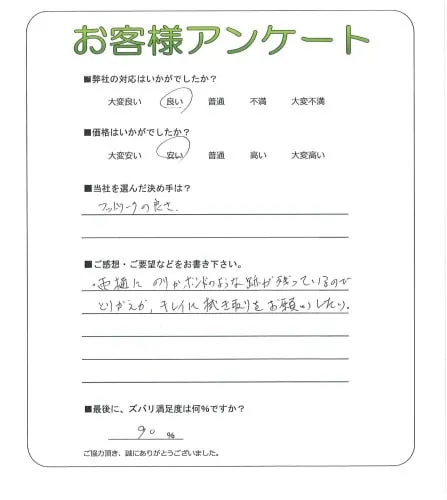 お客様アンケート
■弊社の対応はいかがでしたか?
大変良い 良い 普通 不満 大変不満
■価格はいかがでしたか?
大変安い 安い 普通 高い 大変高い
■当社を選んだ決め手は?
フットワークの良さ.
■ご感想・ご要望などをお書き下さい。
・雨樋に のりかボンドのような跡が残っているので
とりかえか, キレイに拭き取りをお願いしたい.
■最後に、ズバリ満足度は何%ですか?
90 %
ご協力頂き、誠にありがとうございました。